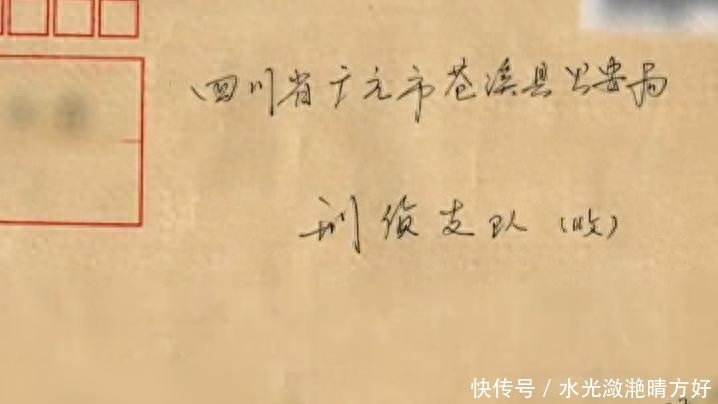 四川省广元市苍溪县公安局
刑侦支队(收)
快传号／水光潋滟晴方好